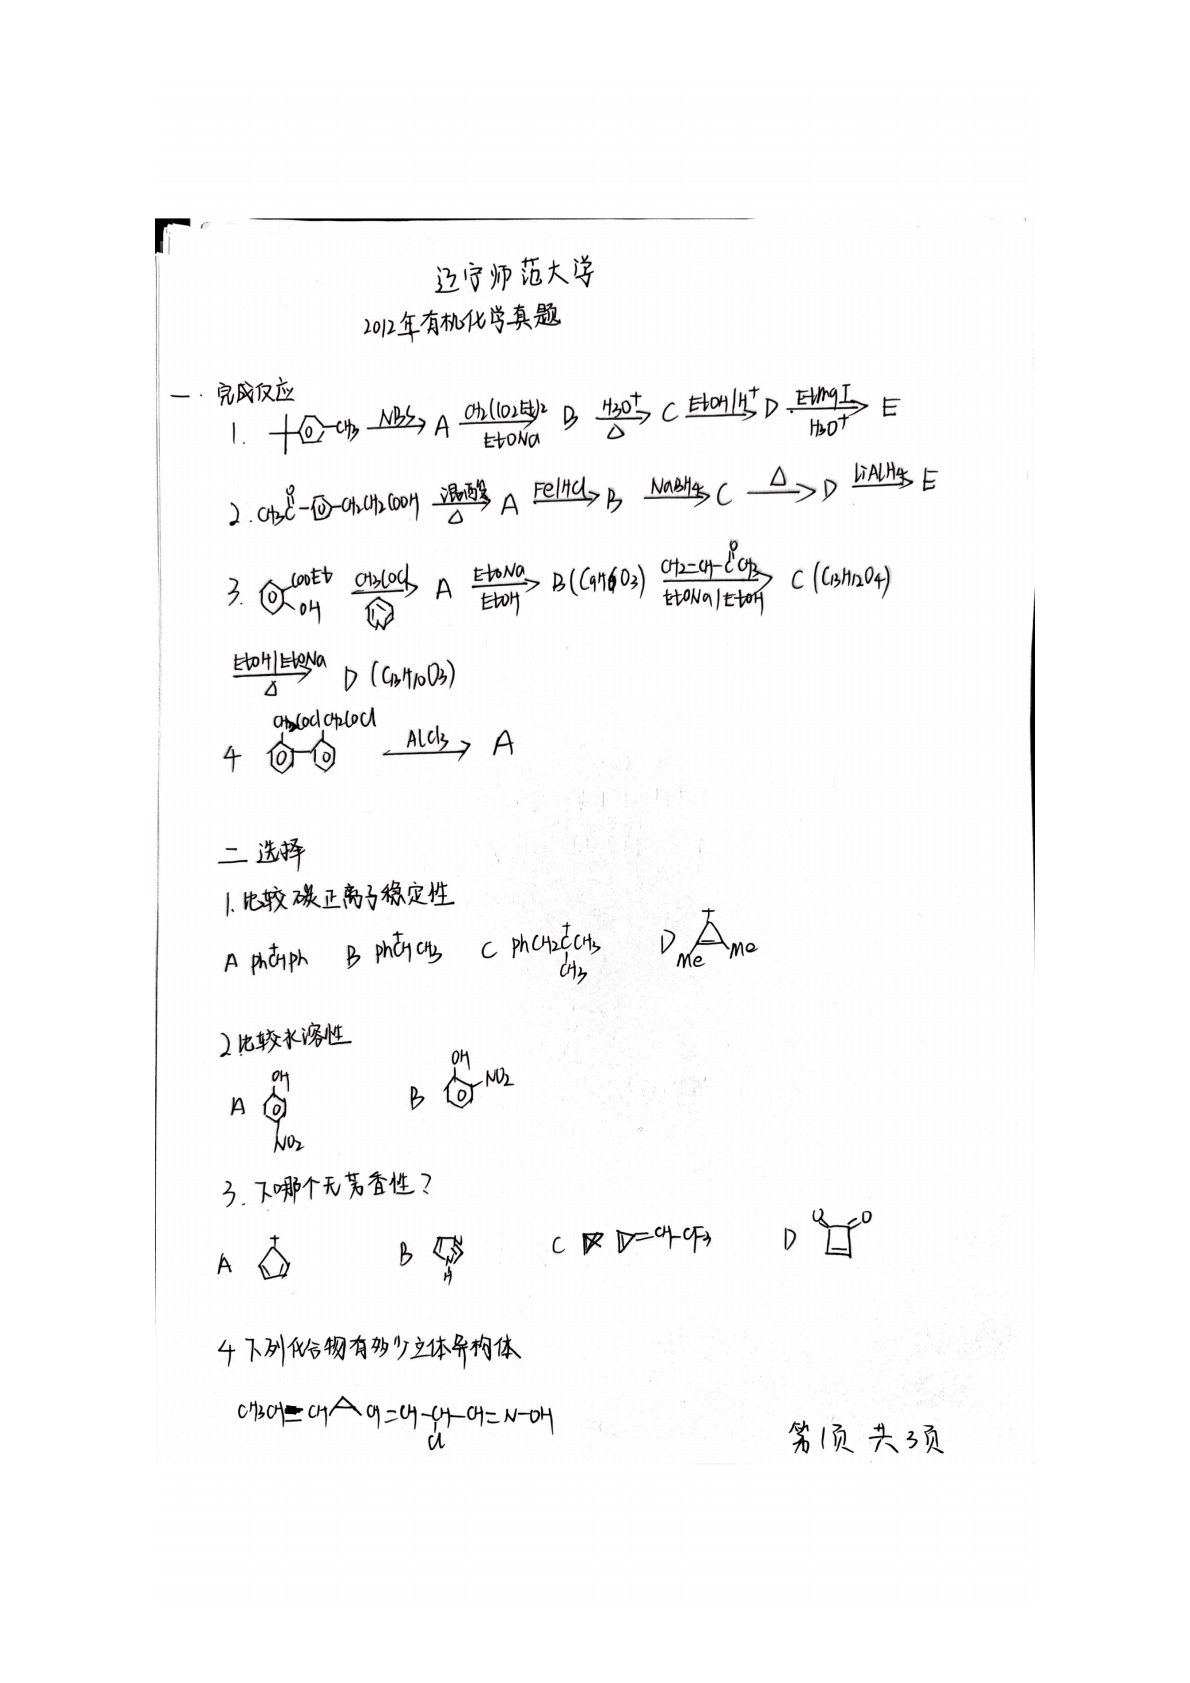 辽宁师范大学
2012年有机化学真题
一. 完成反应
1. CH3 NBS A CH2(CO2Et)2 EtONa B H3O+ △ C EtOH/H+ D EtMgI H3O+ E
2. CH3C O CH2CH2COOH 混酸 △ A Fe/HCl B NaBH4 C △ D LiAlH4 E
3. COOEt OH CH3COCl N A EtONa EtOH B(C9H6O3) CH2=CH-CCH3 O EtONa/EtOH C(C13H12O4)
EtOH/EtONa △ D (C13H10O3)
4 CH2COCl CH2COCl AlCl3 A
二 选择
1. 比较碳正离子稳定性
A phCHph + B phCHCH3 + C phCH2CCH3 + CH3 D + Me Me
2 比较水溶性
A OH NO2 B OH NO2
3. 下哪个无芳香性?
A + B N N H C =CH-CF3 D O O
4 下列化合物有多少立体异构体
CH3CH=CH CH=CH-CH-CH=N-OH Cl
第1页 共3页